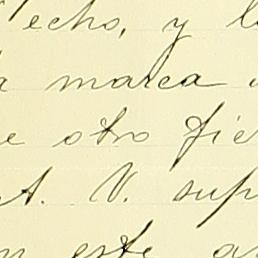 echo, y
marca
otro fie
A. V. sup
este